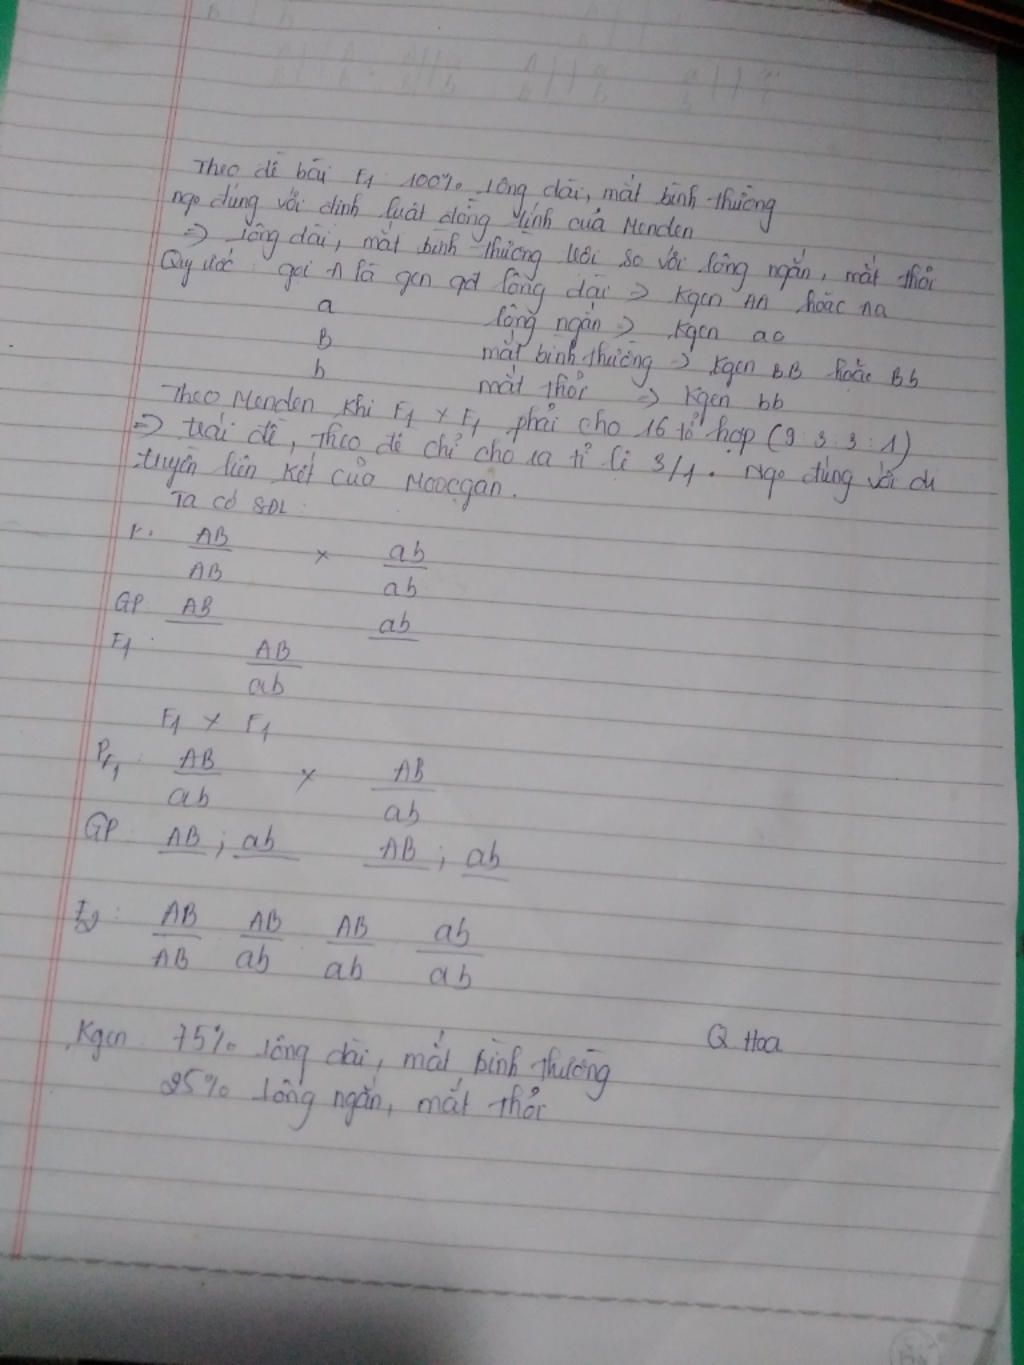 Theo đề bài F1 100% lông dài, mắt bình thường
ngo đúng với định luật đồng tính của Menden
=> lông dài, mắt bình thường trội so với lông ngắn, mắt thỏi
Quy ước : gọi A là gen qđ lông dài => Kgen AA hoặc Aa
a lông ngắn => Kgen aa
B mắt bình thường -> Kgen BB hoặc Bb
b mắt thỏi => Kgen bb
Theo Menden khi F1 x F1 phải cho 16 tổ hợp (9:3:3:1)
=> trái đề, Theo đề chỉ cho ra tỉ lệ 3/1. Ngo đúng với di
truyền liên kết của Moocgan.
Ta có SĐL:
P. AB/AB x ab/ab
GP AB ab
F1 : AB/ab
F1 x F1
PF1 : AB/ab x AB/ab
GP AB ; ab AB ; ab
F2 : AB/AB AB/ab AB/ab ab/ab
Kgen 75% lông dài, mắt bình thường
Q Hoa
25% lông ngắn, mắt thỏi